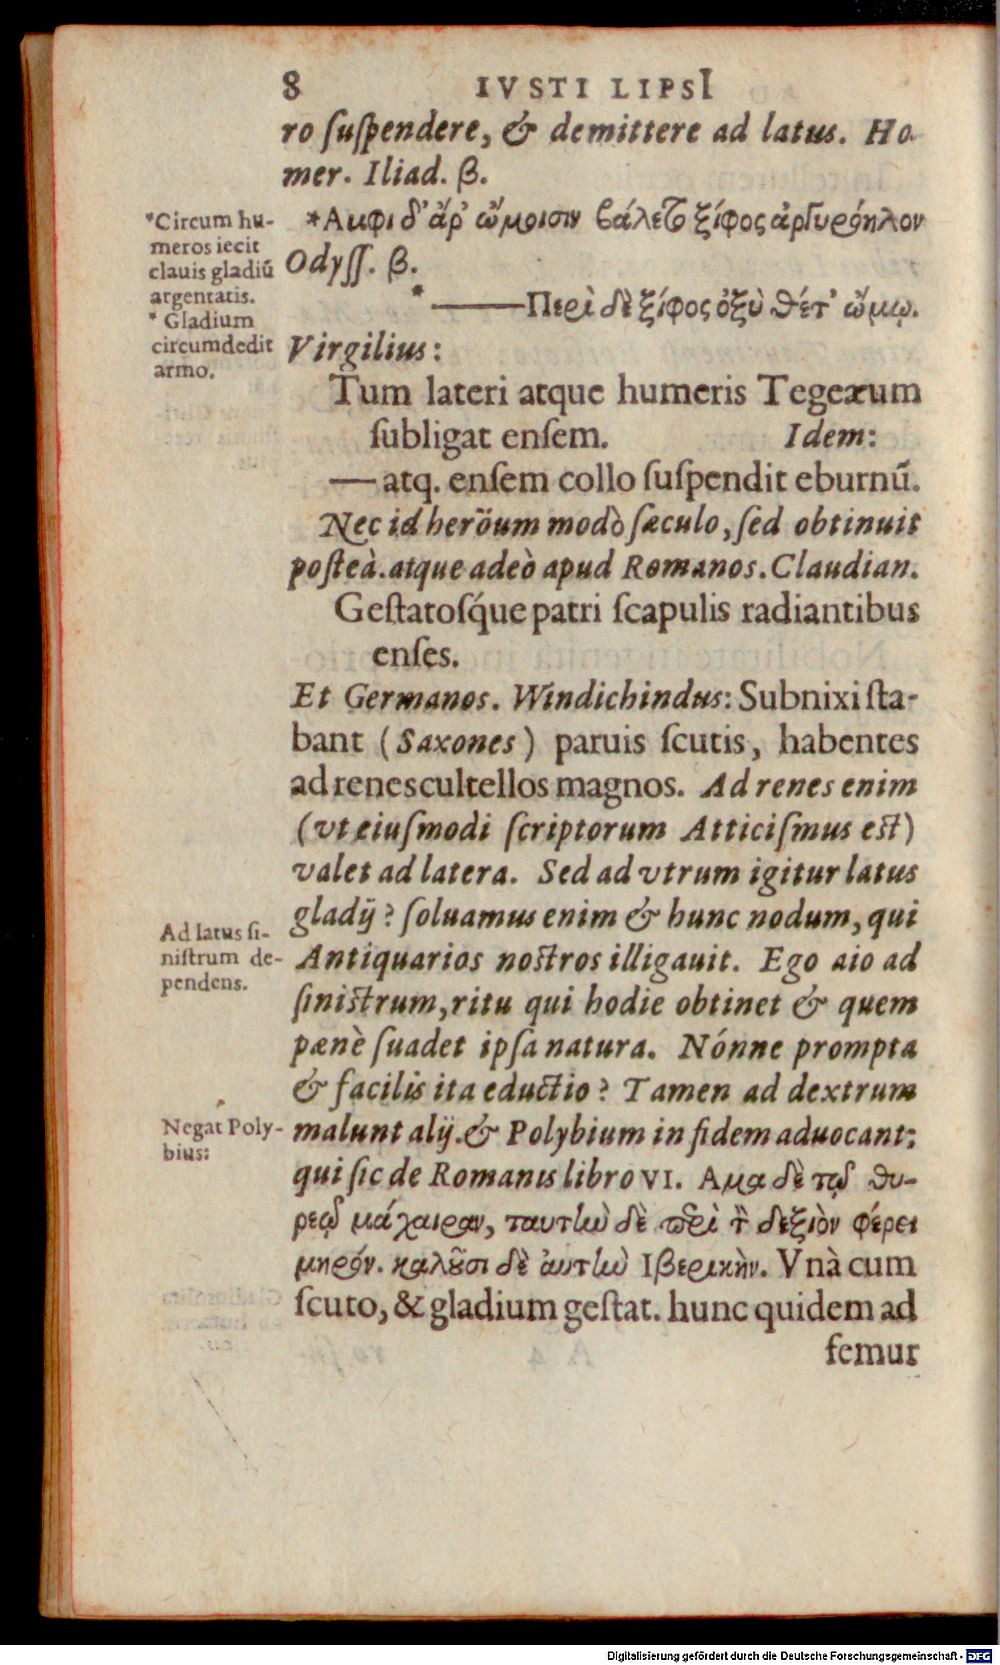 8 IVSTI LIPSI
ro ſuſpendere, & demittere ad latus. Ho-
mer. Iliad. β.
*Circum hu-
meros iecit
clauis gladiū
argentatis.
* Gladium
circumdedit
armo.
*Αμφι δ' ἄρ' ὤμοισιν βάλετο ξίφος ἀργυρόηλον
Odyſſ. β.
* ——Περὶ δὲ ξίφος ὀξὺ θέτ' ὤμῳ.
Virgilius:
Tum lateri atque humeris Tegeæum
ſubligat enſem. Idem:
— atq. enſem collo ſuſpendit eburnū.
Nec id heröum modò ſæculo, ſed obtinuit
poſteà. atque adeò apud Romanos. Claudian.
Geſtatoſq́ue patri ſcapulis radiantibus
enſes.
Et Germanos. Windichindus: Subnixi ſta-
bant (Saxones) paruis ſcutis, habentes
ad renes cultellos magnos. Ad renes enim
(vt eiuſmodi ſcriptorum Atticiſmus eſt)
valet ad latera. Sed ad vtrum igitur latus
gladij? ſoluamus enim & hunc nodum, qui
Ad latus ſi-
niſtrum de-
pendens.
Antiquarios noſtros illigauit. Ego aio ad
ſiniſtrum, ritu qui hodie obtinet & quem
pænè ſuadet ipſa natura. Nónne prompta
& facilis ita eductio? Tamen ad dextrum
Negat Poly-
bius:
malunt alij. & Polybium in fidem aduocant:
qui ſic de Romanis libro VI. Αμα δὲ τῷ θυ-
ρεῷ μάχαιραν, ταυτὴν δὲ περὶ τὸν δεξιὸν φέρει
μηρόν. καλοῦσι δὲ ἀυτὴν Ιβερικὴν. Vnà cum
ſcuto, & gladium geſtat. hunc quidem ad
femur
Digitalisierung gefördert durch die Deutsche Forschungsgemeinschaft - DFG